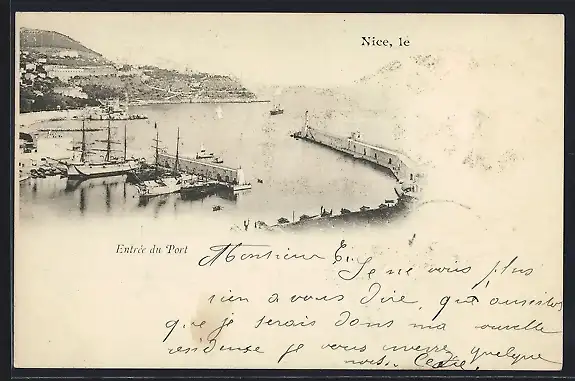 Nice, le
Entrée du Port
Monsieur E. Je ne vois plus
rien a vous dire, que aussitot
que je serais dans ma nouvelle
residense je vous
quelque
mots.